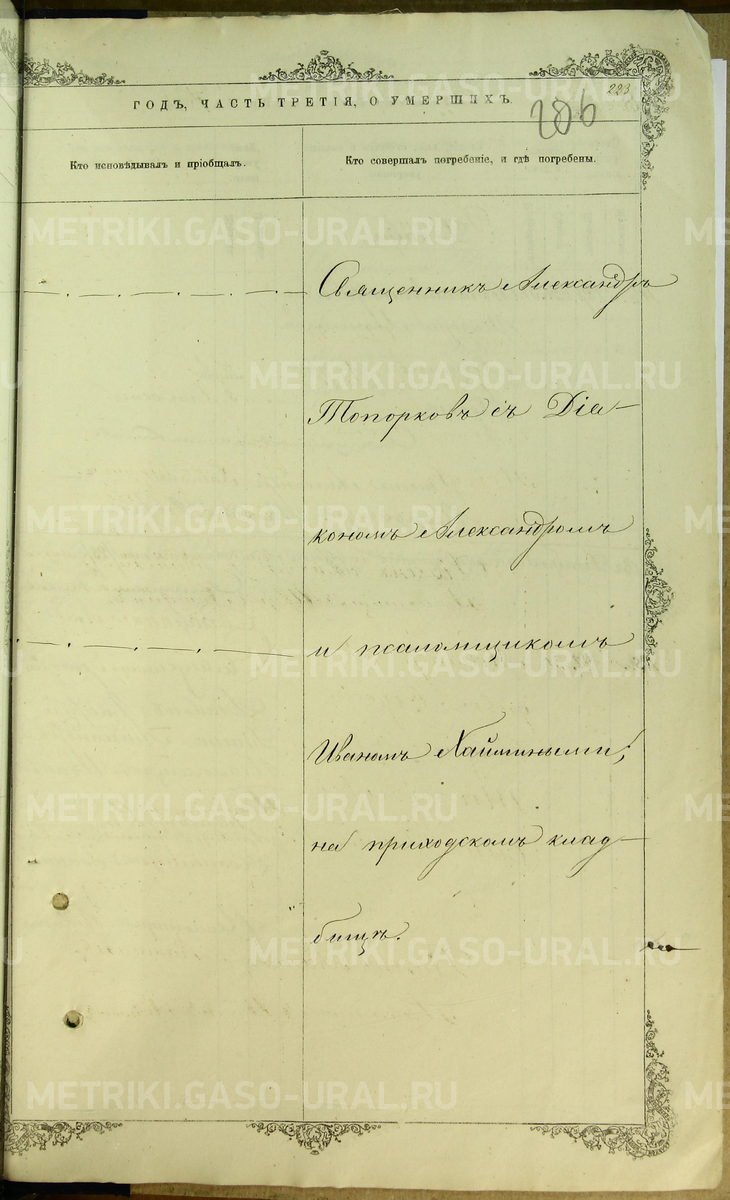 223
ГОДЪ, ЧАСТЬ ТРЕТІЯ, О УМЕРШИХЪ.
206
Кто исповѣдывалъ и пріобщалъ.
Кто совершалъ погребеніе, и гдѣ погребены.
Священникъ Александръ
Топорковъ съ Діа-
кономъ Александромъ
и псаломщикомъ
Иваномъ Хаймиными;
на приходскомъ клад-
бищѣ.
METRIKI.GASO-URAL.RU